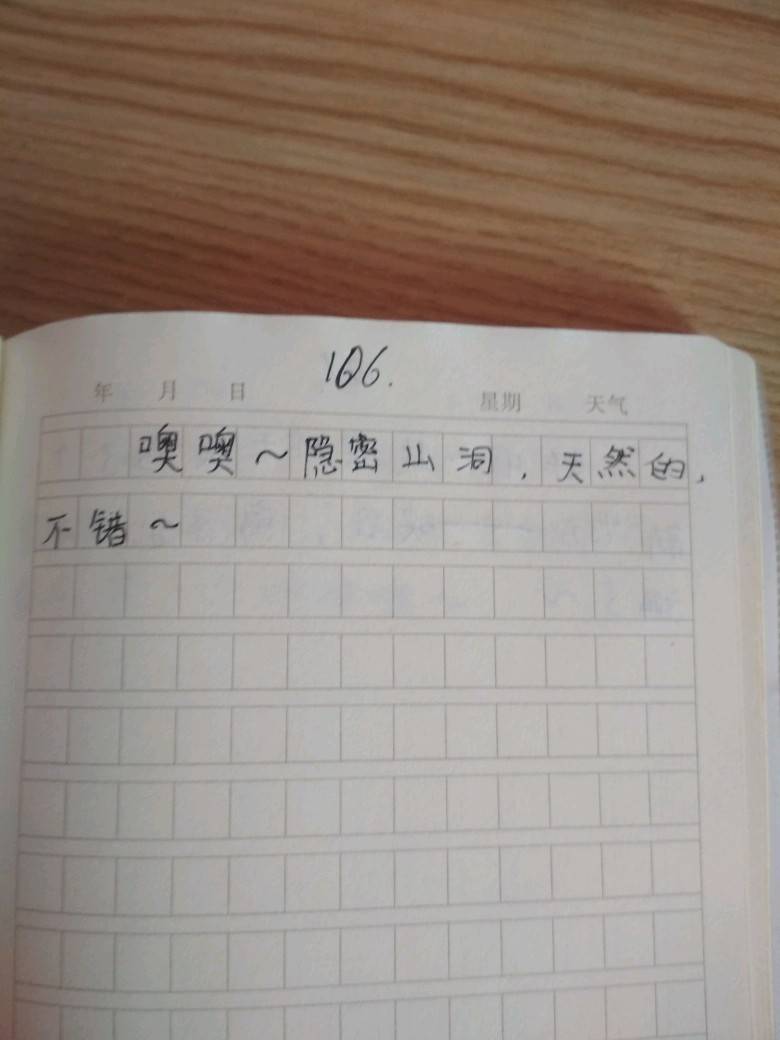 106.
年 月 日 星期 天气
噢噢～隐密山洞，天然的，
不错～